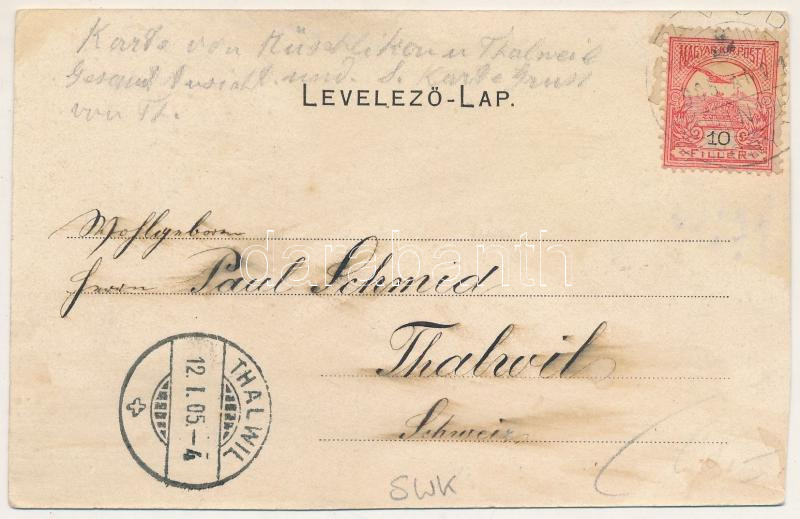 Karte von Rüschlikon u Thalweil
Gesamt Ansicht und. S. Karte Gruss
von Th.
LEVELEZŐ-LAP.
MAGYAR KIR. POSTA
10
FILLÉR
Wohlgeboren
Herrn Paul Schmid
Thalwil
Schweiz
THALWIL
12.I.05.-4
SWK
darabanth